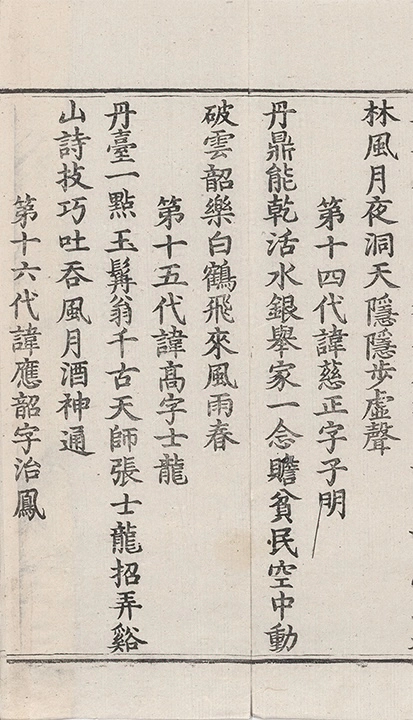 林風月夜洞天隱隱步虛聲
第十四代諱慈正字子明
丹鼎能乾活水銀舉家一念贍貧民空中動
破雲韶樂白鶴飛來風雨春
第十五代諱高字士龍
丹臺一點玉髯翁千古天師張士龍招弄谿
山詩技巧吐吞風月酒神通
第十六代諱應韶字治鳳